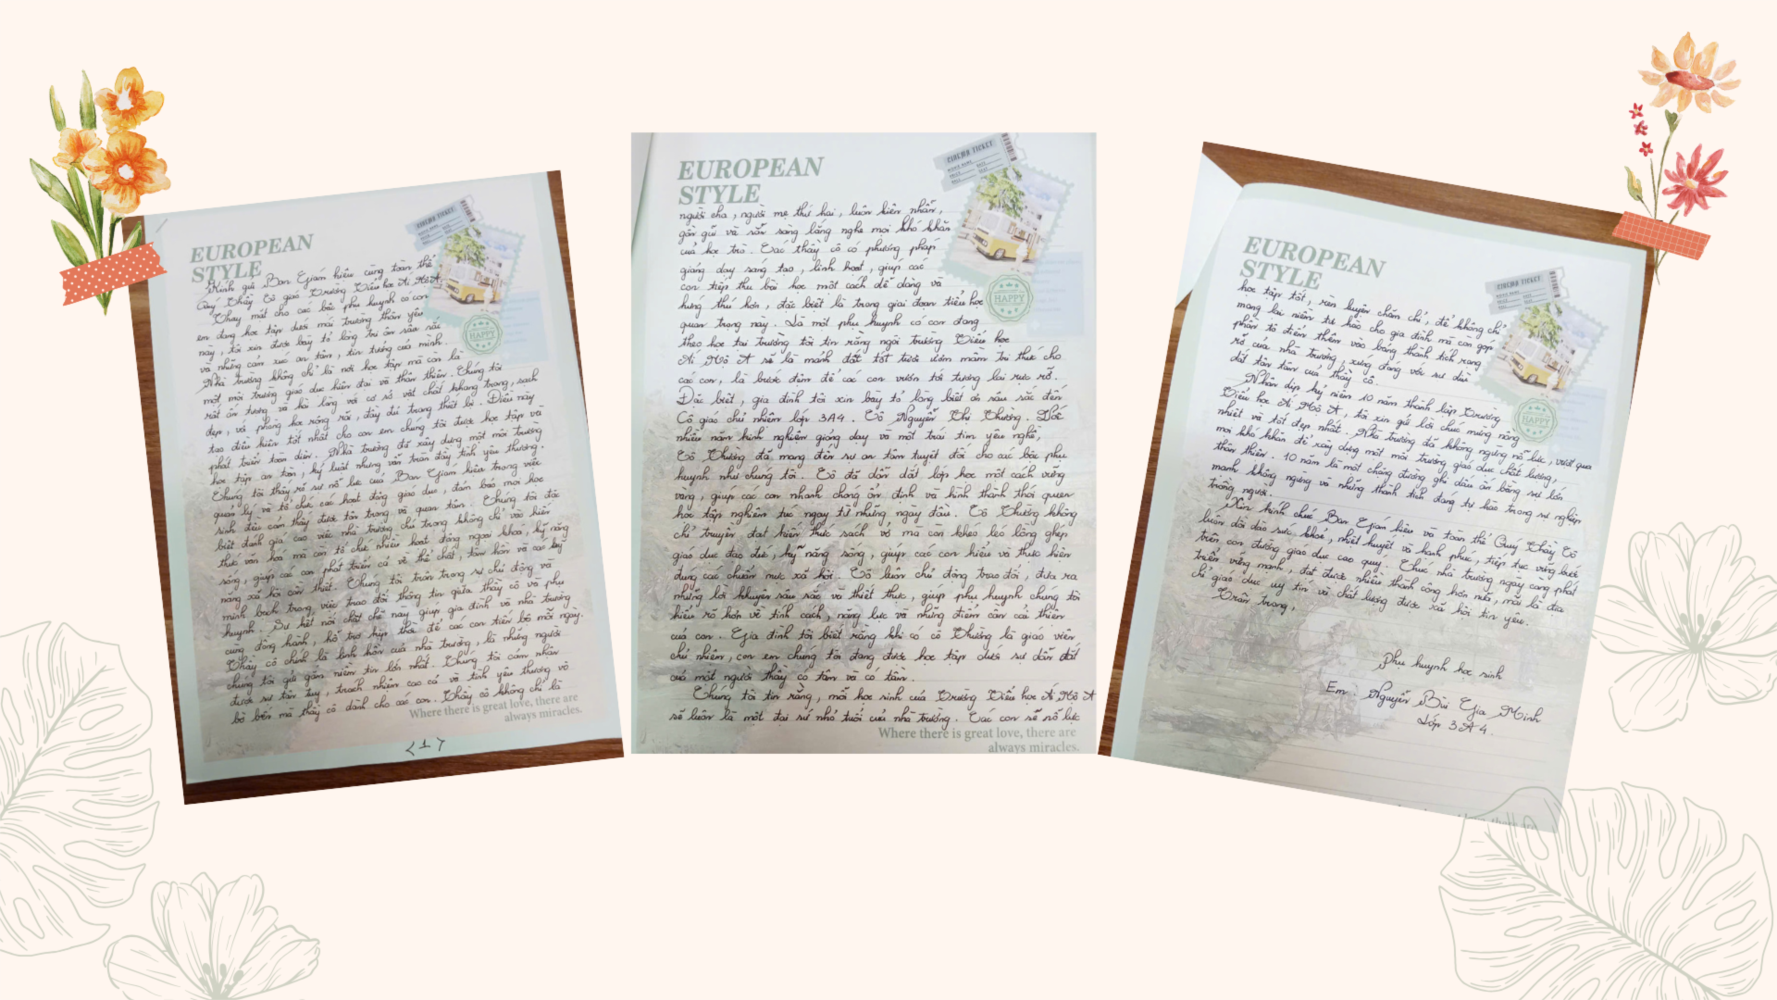 EUROPEAN
STYLE
Kính gửi Ban Giám hiệu cùng toàn thể
Quý Thầy Cô giáo Trường Tiểu học Ái Mộ A
Thay mặt cho các bậc phụ huynh có con
em đang học tập dưới mái trường thân yêu
này, tôi xin được bày tỏ lòng tri ân sâu sắc
và những cảm xúc an tâm, tin tưởng của mình.
Nhà trường không chỉ là nơi học tập mà còn là
một môi trường giáo dục hiện đại và thân thiện. Chúng tôi
rất ấn tượng và hài lòng với cơ sở vật chất khang trang, sạch
đẹp, và phòng học rộng rãi, đầy đủ trang thiết bị. Điều này
tạo điều kiện tốt nhất cho con em chúng tôi được học tập và
phát triển toàn diện. Nhà trường đã xây dựng một môi trường
học tập an toàn, kỷ luật nhưng vẫn tràn đầy tình yêu thương.
Chúng tôi thấy rõ sự nỗ lực của Ban Giám hiệu trong việc
quản lý và tổ chức các hoạt động giáo dục, đảm bảo mọi học
sinh đều cảm thấy được tôn trọng và quan tâm. Chúng tôi đặc
biệt đánh giá cao việc nhà trường chú trọng không chỉ vào kiến
thức văn hoá mà còn tổ chức nhiều hoạt động ngoại khoá, kỹ năng
sống, giúp các con phát triển cả về thể chất, tâm hồn và các kỹ
năng xã hội cần thiết. Chúng tôi trân trọng sự chủ động và
minh bạch trong việc trao đổi thông tin giữa thầy cô và phụ
huynh. Sự kết nối chặt chẽ này giúp gia đình và nhà trường
cùng đồng hành, hỗ trợ kịp thời để các con tiến bộ mỗi ngày.
Thầy cô chính là linh hồn của nhà trường, là những người
chúng tôi gửi gắm niềm tin lớn nhất. Chúng tôi cảm nhận
được sự tận tuỵ, trách nhiệm cao cả và tình yêu thương vô
bờ bến mà thầy cô dành cho các con. Thầy cô không chỉ là
Where there is great love, there are
always miracles.
<1>
EUROPEAN
STYLE
CINEMA TICKET
người cha, người mẹ thứ hai, luôn kiên nhẫn,
gần gũi và sẵn sàng lắng nghe mọi khó khăn
của học trò. Các thầy cô có phương pháp
giảng dạy sáng tạo, linh hoạt, giúp các
con tiếp thu bài học một cách dễ dàng và
hứng thú hơn, đặc biệt là trong giai đoạn tiểu học
HAPPY
quan trọng này. Là một phụ huynh có con đang
theo học tại trường tôi tin rằng ngôi trường Tiểu học
Ái Mộ A sẽ là mảnh đất tốt tươi ươm mầm tri thức cho
các con, là bước đệm để các con vươn tới tương lai rực rỡ.
Đặc biệt, gia đình tôi xin bày tỏ lòng biết ơn sâu sắc đến
Cô giáo chủ nhiệm lớp 3A4. Cô Nguyễn Thị Thường. Với
nhiều năm kinh nghiệm giảng dạy và một trái tim yêu nghề,
Cô Thường đã mang đến sự an tâm tuyệt đối cho các bậc phụ
huynh như chúng tôi. Cô đã dẫn dắt lớp học một cách vững
vàng, giúp các con nhanh chóng ổn định và hình thành thói quen
học tập nghiêm túc ngay từ những ngày đầu. Cô Thường không
chỉ truyền đạt kiến thức sách vở mà còn khéo léo lồng ghép
giáo dục đạo đức, kỹ năng sống, giúp các con hiểu và thực hiện
đúng các chuẩn mực xã hội. Cô luôn chủ động trao đổi, đưa ra
những lời khuyên sâu sắc và thiết thực, giúp phụ huynh chúng tôi
hiểu rõ hơn về tính cách, năng lực và những điểm cần cải thiện
của con. Gia đình tôi biết rằng khi có cô Thường là giáo viên
chủ nhiệm, con em chúng tôi đang được học tập dưới sự dẫn dắt
của một người thầy có tâm và có tầm.
Chúng tôi tin rằng, mỗi học sinh của Trường Tiểu học Ái Mộ A
sẽ luôn là một đại sứ nhỏ tuổi của nhà trường. Các con sẽ nỗ lực
Where there is great love, there are
always miracles.
EUROPEAN
STYLE
học tập tốt, rèn luyện chăm chỉ, để không chỉ
mang lại niềm tự hào cho gia đình mà còn góp
phần tô điểm thêm vào bảng thành tích rạng
rỡ của nhà trường, xứng đáng với sự dìu
dắt tận tâm của thầy cô.
Nhân dịp kỷ niệm 10 năm thành lập Trường
Tiểu học Ái Mộ A, tôi xin gửi lời chúc mừng nồng
nhiệt và tốt đẹp nhất. Nhà trường đã không ngừng nỗ lực, vượt qua
mọi khó khăn để xây dựng một môi trường giáo dục chất lượng,
thân thiện. 10 năm là một chặng đường ghi dấu ấn bằng sự lớn
mạnh không ngừng và những thành tích đáng tự hào trong sự nghiệp
trồng người.
Xin kính chúc Ban Giám hiệu và toàn thể Quý Thầy Cô
luôn dồi dào sức khoẻ, nhiệt huyết và hạnh phúc, tiếp tục vững bước
trên con đường giáo dục cao quý. Chúc nhà trường ngày càng phát
triển vững mạnh, đạt được nhiều thành công hơn nữa, mãi là địa
chỉ giáo dục uy tín và chất lượng được xã hội tin yêu.
Trân trọng,
Phụ huynh học sinh
Em: Nguyễn Bùi Gia Minh
Lớp 3A4.